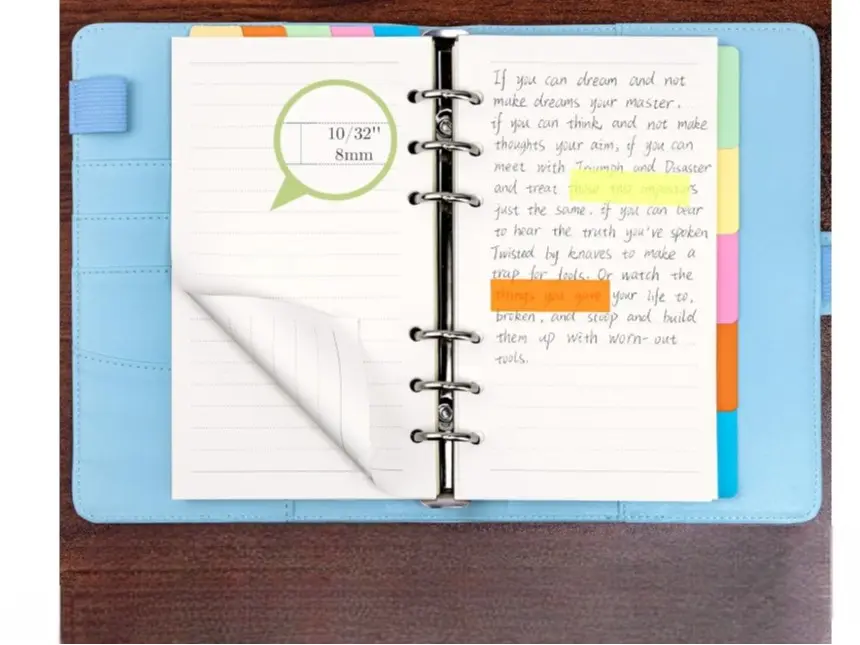 10/32"
8mm
If you can dream and not
make dreams your master.
if you can think, and not make
thoughts your aim, if you can
meet with Triumph and Disaster
and treat those two impostors
just the same. if you can bear
to hear the truth you've spoken
Twisted by knaves to make a
trap for fools. Or watch the
things you gave your life to,
broken, and stoop and build
them up with worn-out
tools.